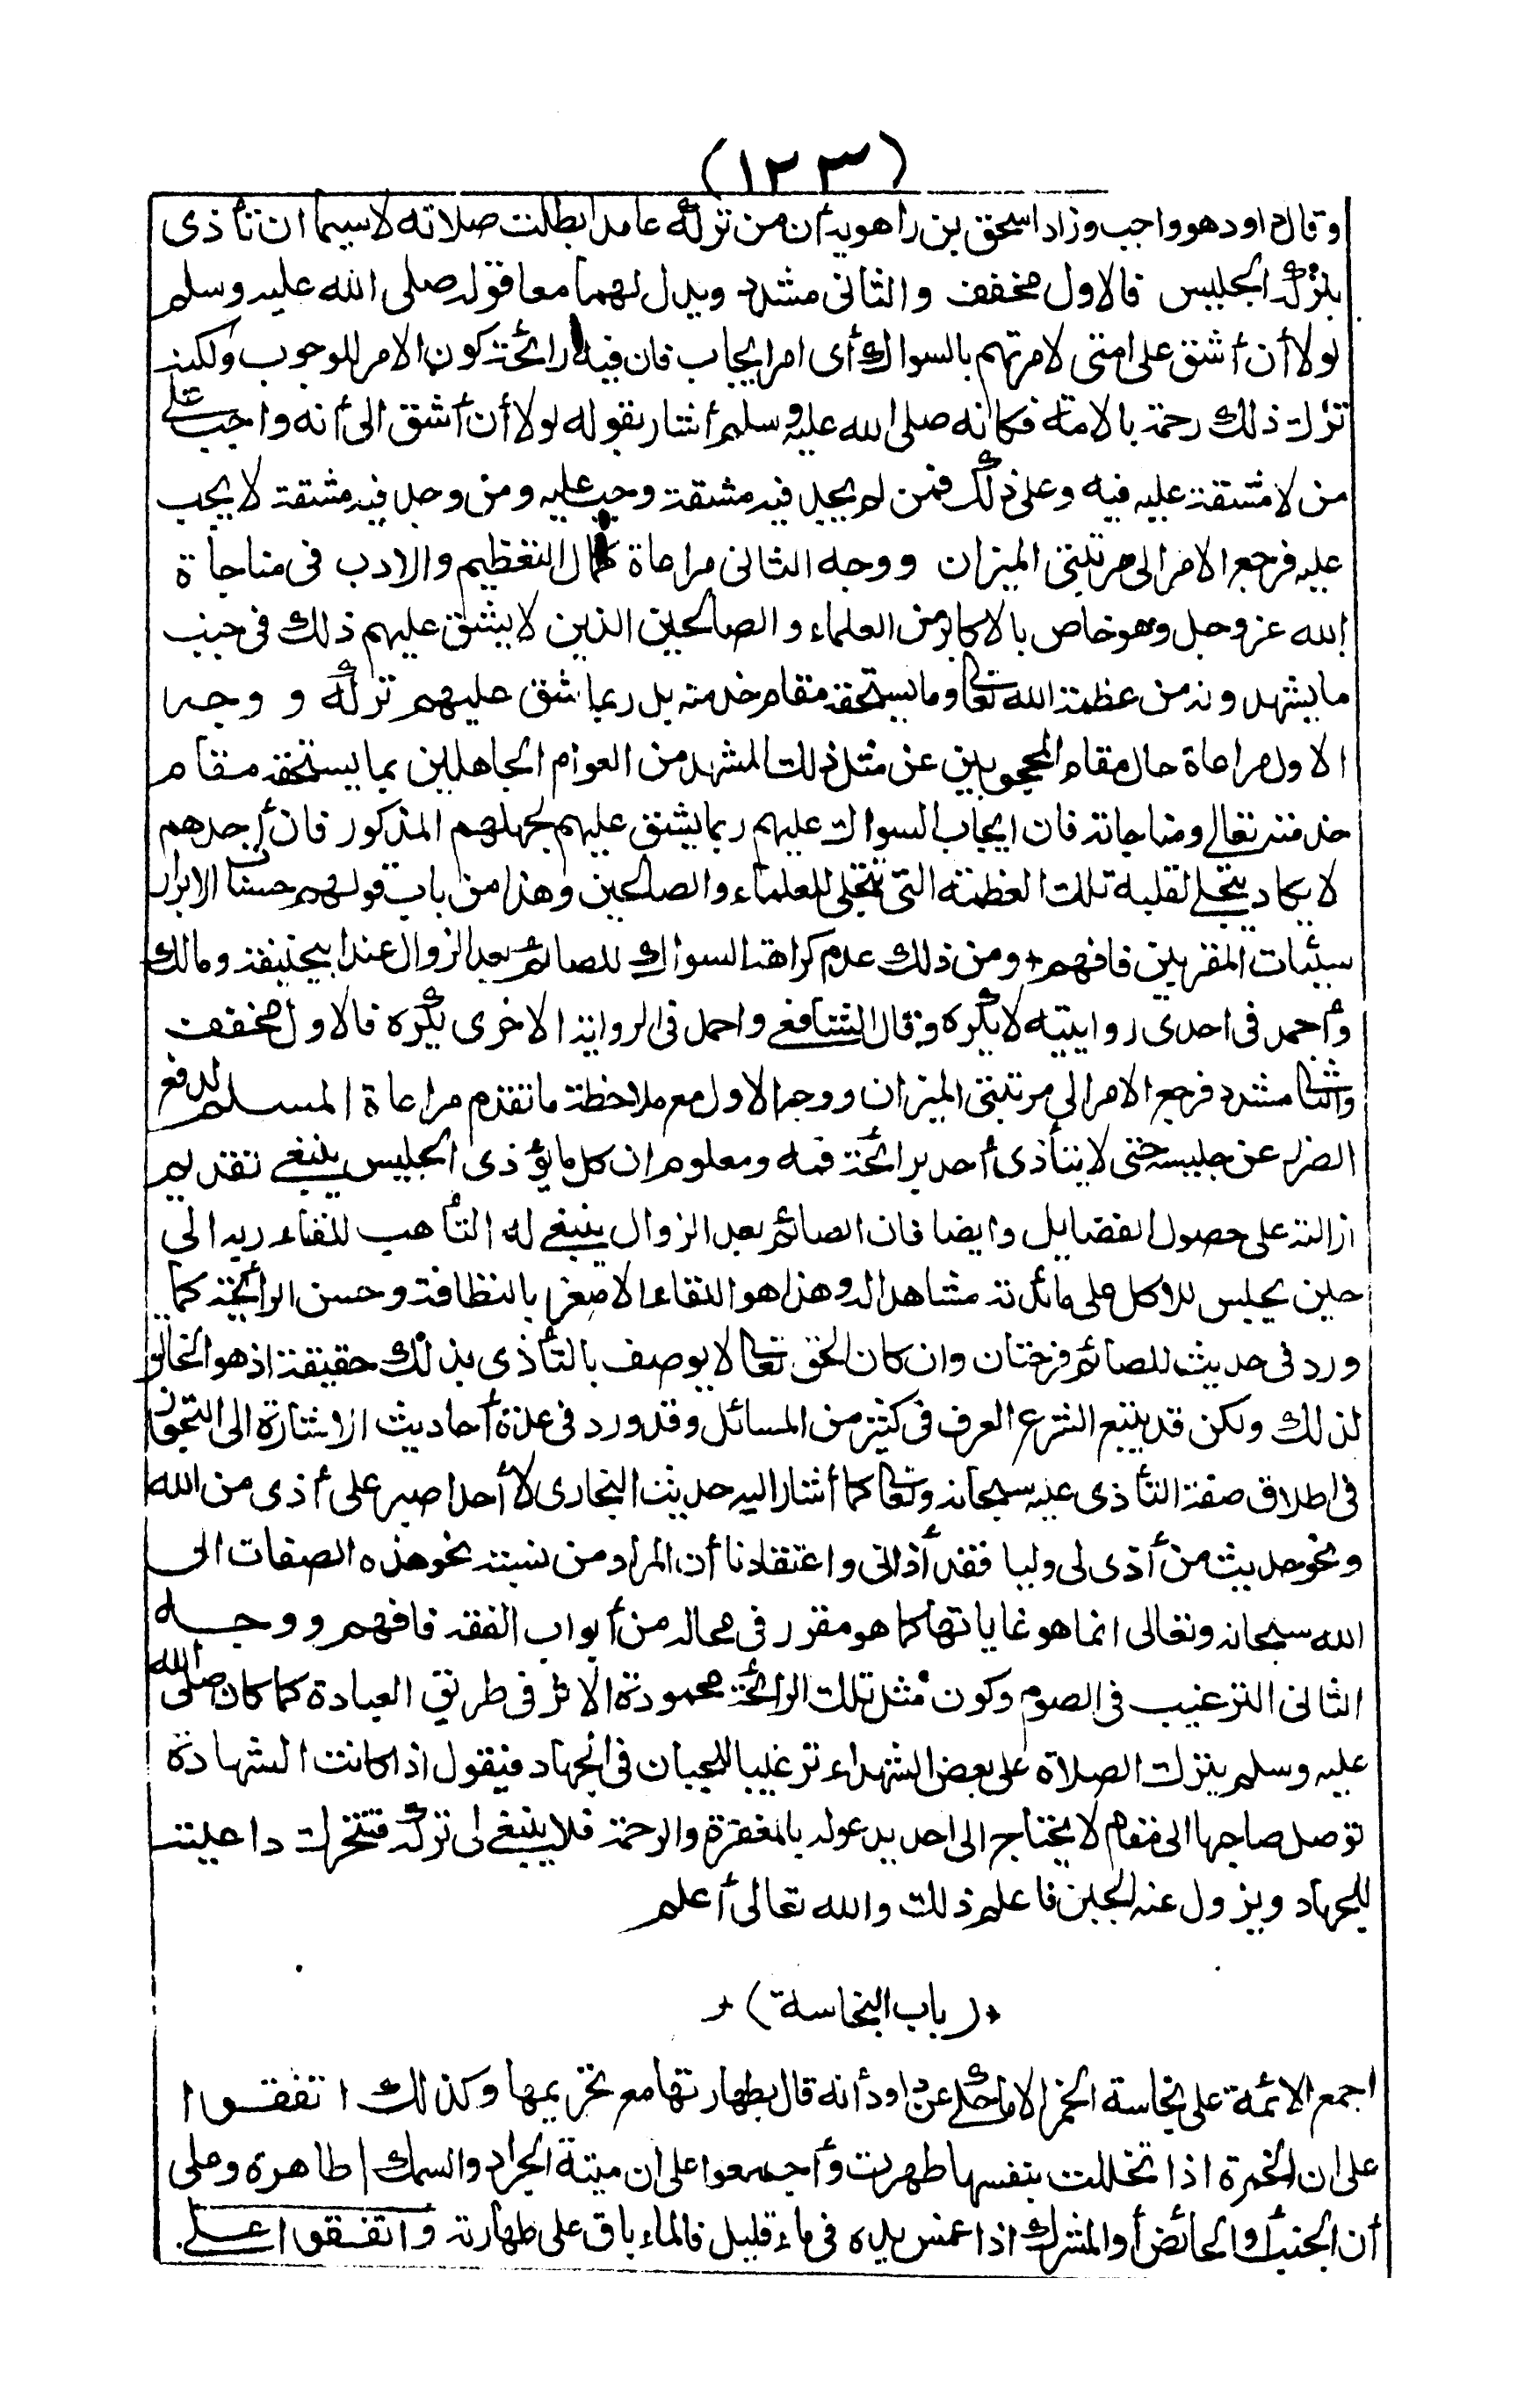 (١٢٣)
وقال داود هو واجب وزاد اسحق بن راهويه أن من تركه عامدا بطلت صلاته لاسيما ان تأذى
بتركه الجليس فالاول مخفف والثانى مشدد ويدل لهما معا قوله صلى الله عليه وسلم
لولا أن أشق على امتى لامرتهم بالسواك أى امر ايجاب فان فيه رائحة كون الامر للوجوب ولكنه
ترك ذلك رحمة بالامة فكانه صلى الله عليه وسلم أشار بقوله لولا أن أشق الى أنه واجب على
من لا مشقة عليه فيه وعلى ذلك فمن لم يجد فيه مشقة وجب عليه ومن وجد فيه مشقة لا يجب
عليه فرجع الامر الى مرتبتى الميزان ووجه الثانى مراعاة كمال التعظيم والادب فى مناجاة
الله عز وجل وهو خاص بالاكابر من العلماء والصالحين الذين لا يشق عليهم ذلك فى جنب
ما يشهدونه من عظمة الله تعالى وما يستحقه مقام خدمته بل ربما شق عليهم تركه ووجه
الاول مراعاة حال مقام المحجوبين عن مثل ذلك المشهد من العوام الجاهلين بما يستحقه مقام
خدمته تعالى ومناجاته فان ايجاب السواك عليهم ربما يشق عليهم لجهلهم المذكور فان أحدهم
لا يكاد يتجلى لقلبه تلك العظمة التى تتجلى للعلماء والصالحين وهذا من باب قولهم حسنات الابرار
سيئات المقربين فافهم * ومن ذلك عدم كراهة السواك للصائم بعد الزوال عند ابيحنيفة ومالك
وأحمد فى احدى روايتيه لا يكره وقال الشافعى واحمد فى الرواية الاخرى يكره فالاول مخفف
والثانى مشدد فرجع الامر الى مرتبتى الميزان ووجه الاول مع ملاحظة ما تقدم مراعاة المسلم لدفع
الضرر عن جليسه حتى لا يتأذى أحد برائحة فمه ومعلوم ان كل ما يؤذى الجليس ينبغى تقديم
ازالته على حصول الفضايل وايضا فان الصائم بعد الزوال ينبغى له التأهب للقاء ربه الى
حين يجلس للاكل على مائدته مشاهدا له وهذا هو اللقاء الاصغر بالنظافة وحسن الرائحة كما
ورد فى حديث للصائم فرحتان وان كان الحق تعالى لا يوصف بالتأذى بذلك حقيقة اذ هو الخالق
لذلك ولكن قد يتبع الشرع العرف فى كثير من المسائل وقد ورد فى عدة أحاديث الاشارة الى التجوز
فى اطلاق صفة التأذى عليه سبحانه وتعالى كما أشار اليه حديث البخارى لا أحد اصبر على أذى من الله
ونحو حديث من أذى لى وليا فقد أذانى واعتقادنا أن المراد من نسبة نحو هذه الصفات الى
الله سبحانه وتعالى انما هو غاياتها كما هو مقرر فى محاله من أبواب الفقه فافهم ووجه
الثانى الترغيب فى الصوم وكون مثل تلك الرائحة محمودة الاثر فى طريق العبادة كما كان صلى الله
عليه وسلم يترك الصلاة على بعض الشهداء ترغيبا للجبان فى الجهاد فيقول اذا كانت الشهادة
توصل صاحبها الى مقام لا يحتاج الى احد يدعو له بالمغفرة والرحمة فلا ينبغى لى تركه فتتحرك داعيته
للجهاد ويزول عنه الجبن فاعلم ذلك والله تعالى أعلم
*(باب النجاسة)*
اجمع الائمة على نجاسة الخمر الا ما حكى عن داود أنه قال بطهارتها مع تحريمها وكذلك اتفقوا
على ان الخمرة اذا تخللت بنفسها طهرت وأجمعوا على ان ميتة الجراد والسمك طاهرة وعلى
أن الجنب أو الحائض أو المشرك اذا غمس يده فى ماء قليل فالماء باق على طهارته واتفقوا على